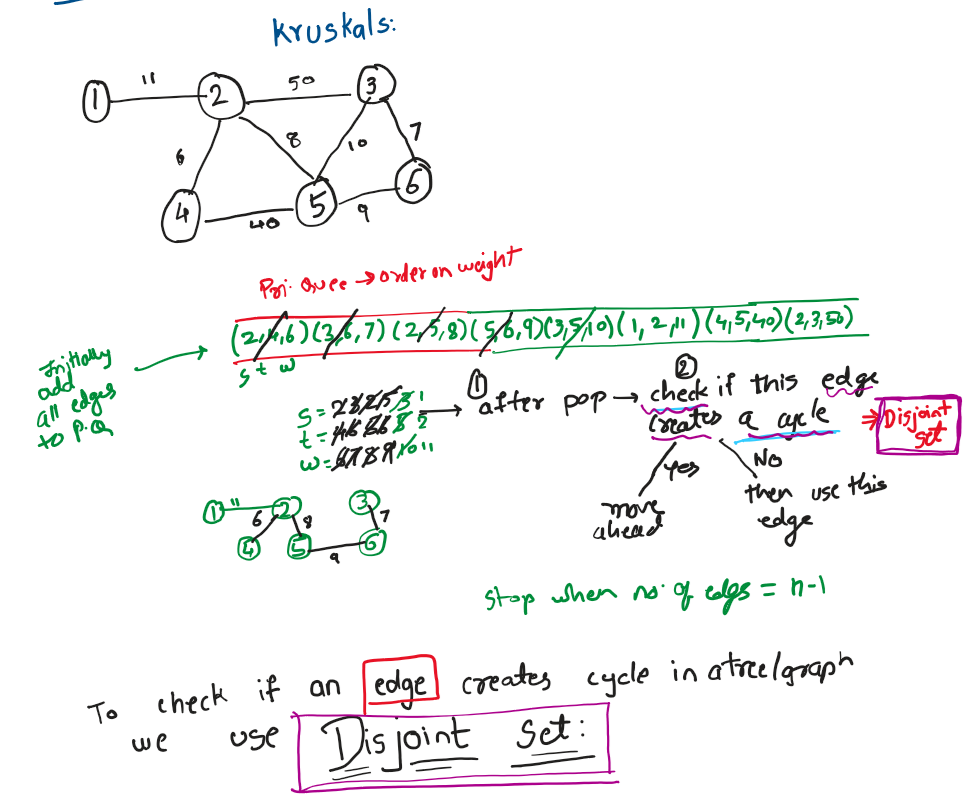 Kruskals:
11
50
1
2
3
6
8
10
7
4
5
6
40
9
Pri. Quee → order on weight
(2,4,6) (3,6,7) (2,5,8) (5,6,9) (3,5,10) (1,2,11) (4,5,40) (2,3,50)
s t w
Initially
add
all edges
to P.Q
S = 2 3 2 5 3 1
t = 4 6 5 6 5 2
w = 6 7 8 9 10 11
① after pop → ② check if this edge
creates a cycle ⇒ Disjoint
set
Yes
No
move
ahead
then use this
edge
1
11
2
3
6
8
7
4
5
6
9
Stop when no. of edgs = n-1
To check if an edge creates cycle in a tree/graph
we use Disjoint Set: